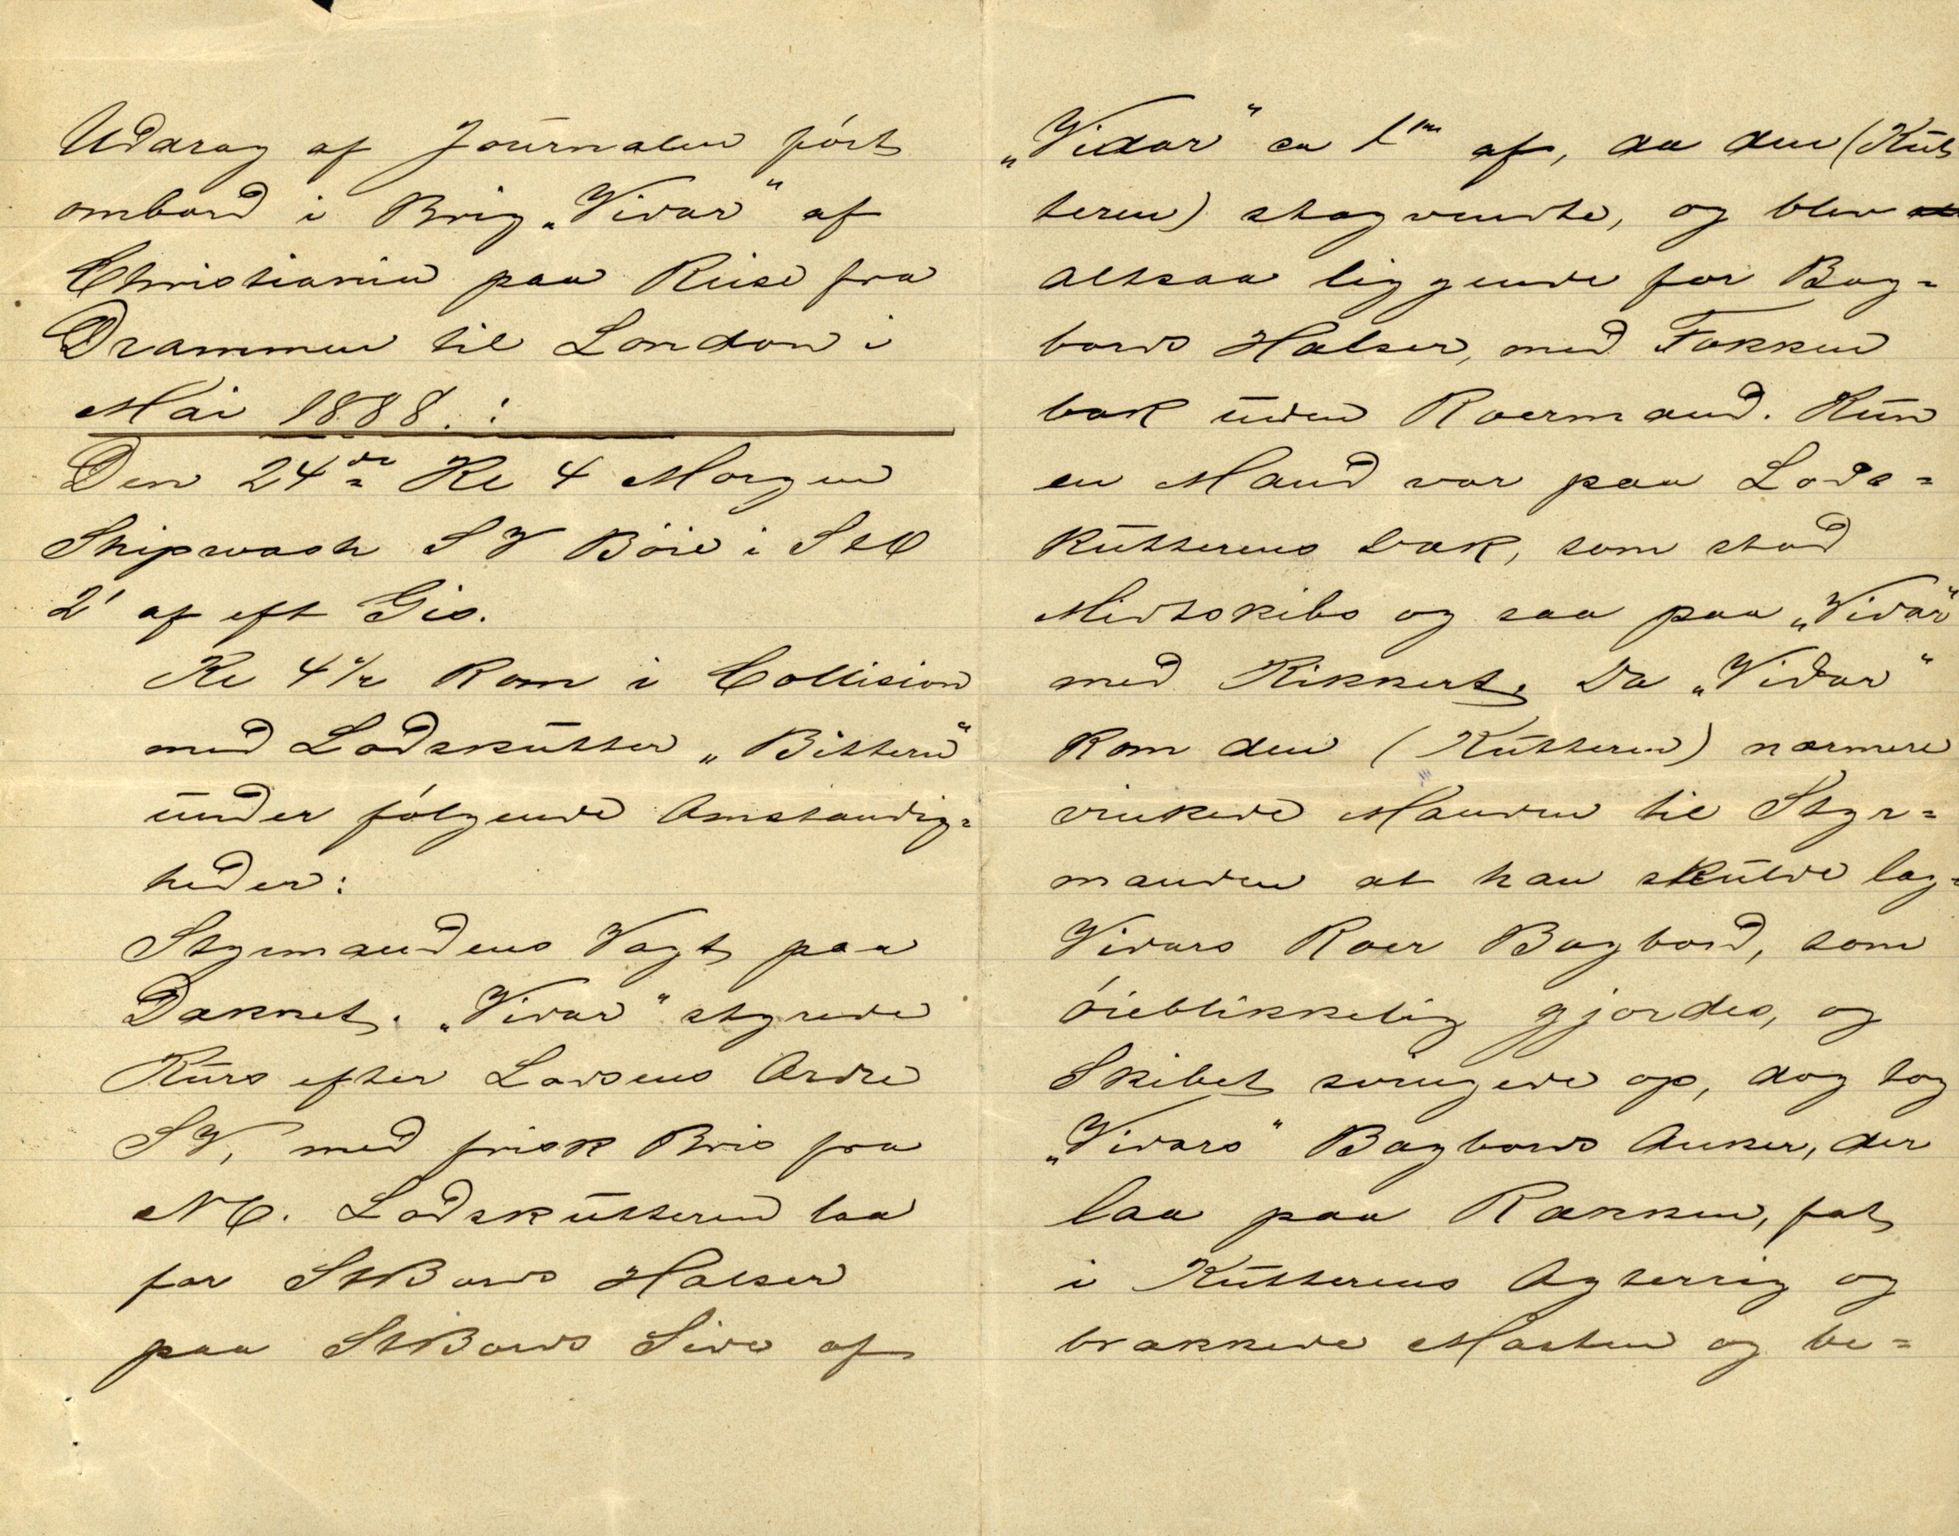 Uddrag af Journalen ført
ombord i Brig „Vidar“ af
Christiania paa Reise fra
Drammen til London i
Mai 1888.:
Den 24de Kl 4 Morgen
Shipwash SV Bøie i StO
2' af eft Gis.
Kl 4½ kom i Collision
med Lodskutter „Bittern“
under følgende Omstændig=
heder:
Styrmandens Vagt paa
Dækket. „Vidar“ styrede
Kurs efter Lodsens Ordre
SV, med frisk Bris fra
NO. Lodskutteren laa
for StBords Halser
paa StBords Side af
„Vidar“ ca af, da den (Kut
teren) stagvendte, og blev
altsaa liggende for Bag=
bords Halser, med Fokken
bak uden Roermand. Kun
en Mand var paa Lods=
kutterens Dæk, som stod
Midtskibs og saa paa „Vidar“
med Kikkert. Da „Vidar“
kom den (Kutteren) nærmere
vinkede Manden til Styr=
manden at han skulde læg=
Vidars Roer Bagbord, som
øieblikkelig gjordes, og
Skibet svingede op, dog tog
„Vidars“ Bagbords Anker, der
laa paa Rækken, fat
i Kutterens Agterrig og
brækkede Masten og be=